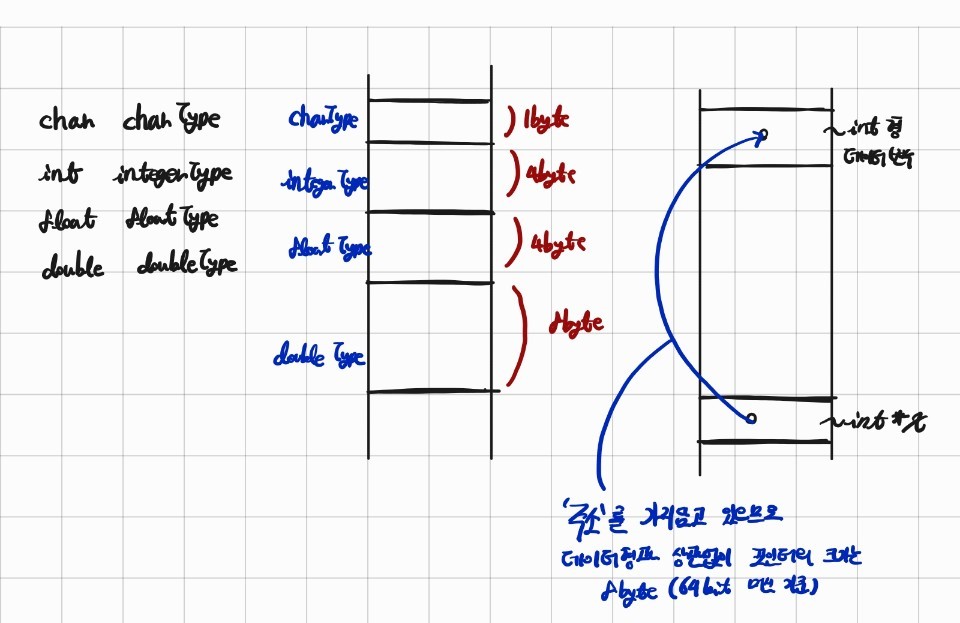 char charType
int integerType
float floatType
double doubleType
charType
integerType
floatType
double Type
1byte
4byte
4byte
8byte
int 형
데이터 변수
int *x
'주소'를 가리키고 있으므로
데이터형과 상관없이 포인터의 크기는
8byte (64bit 머신 기준)